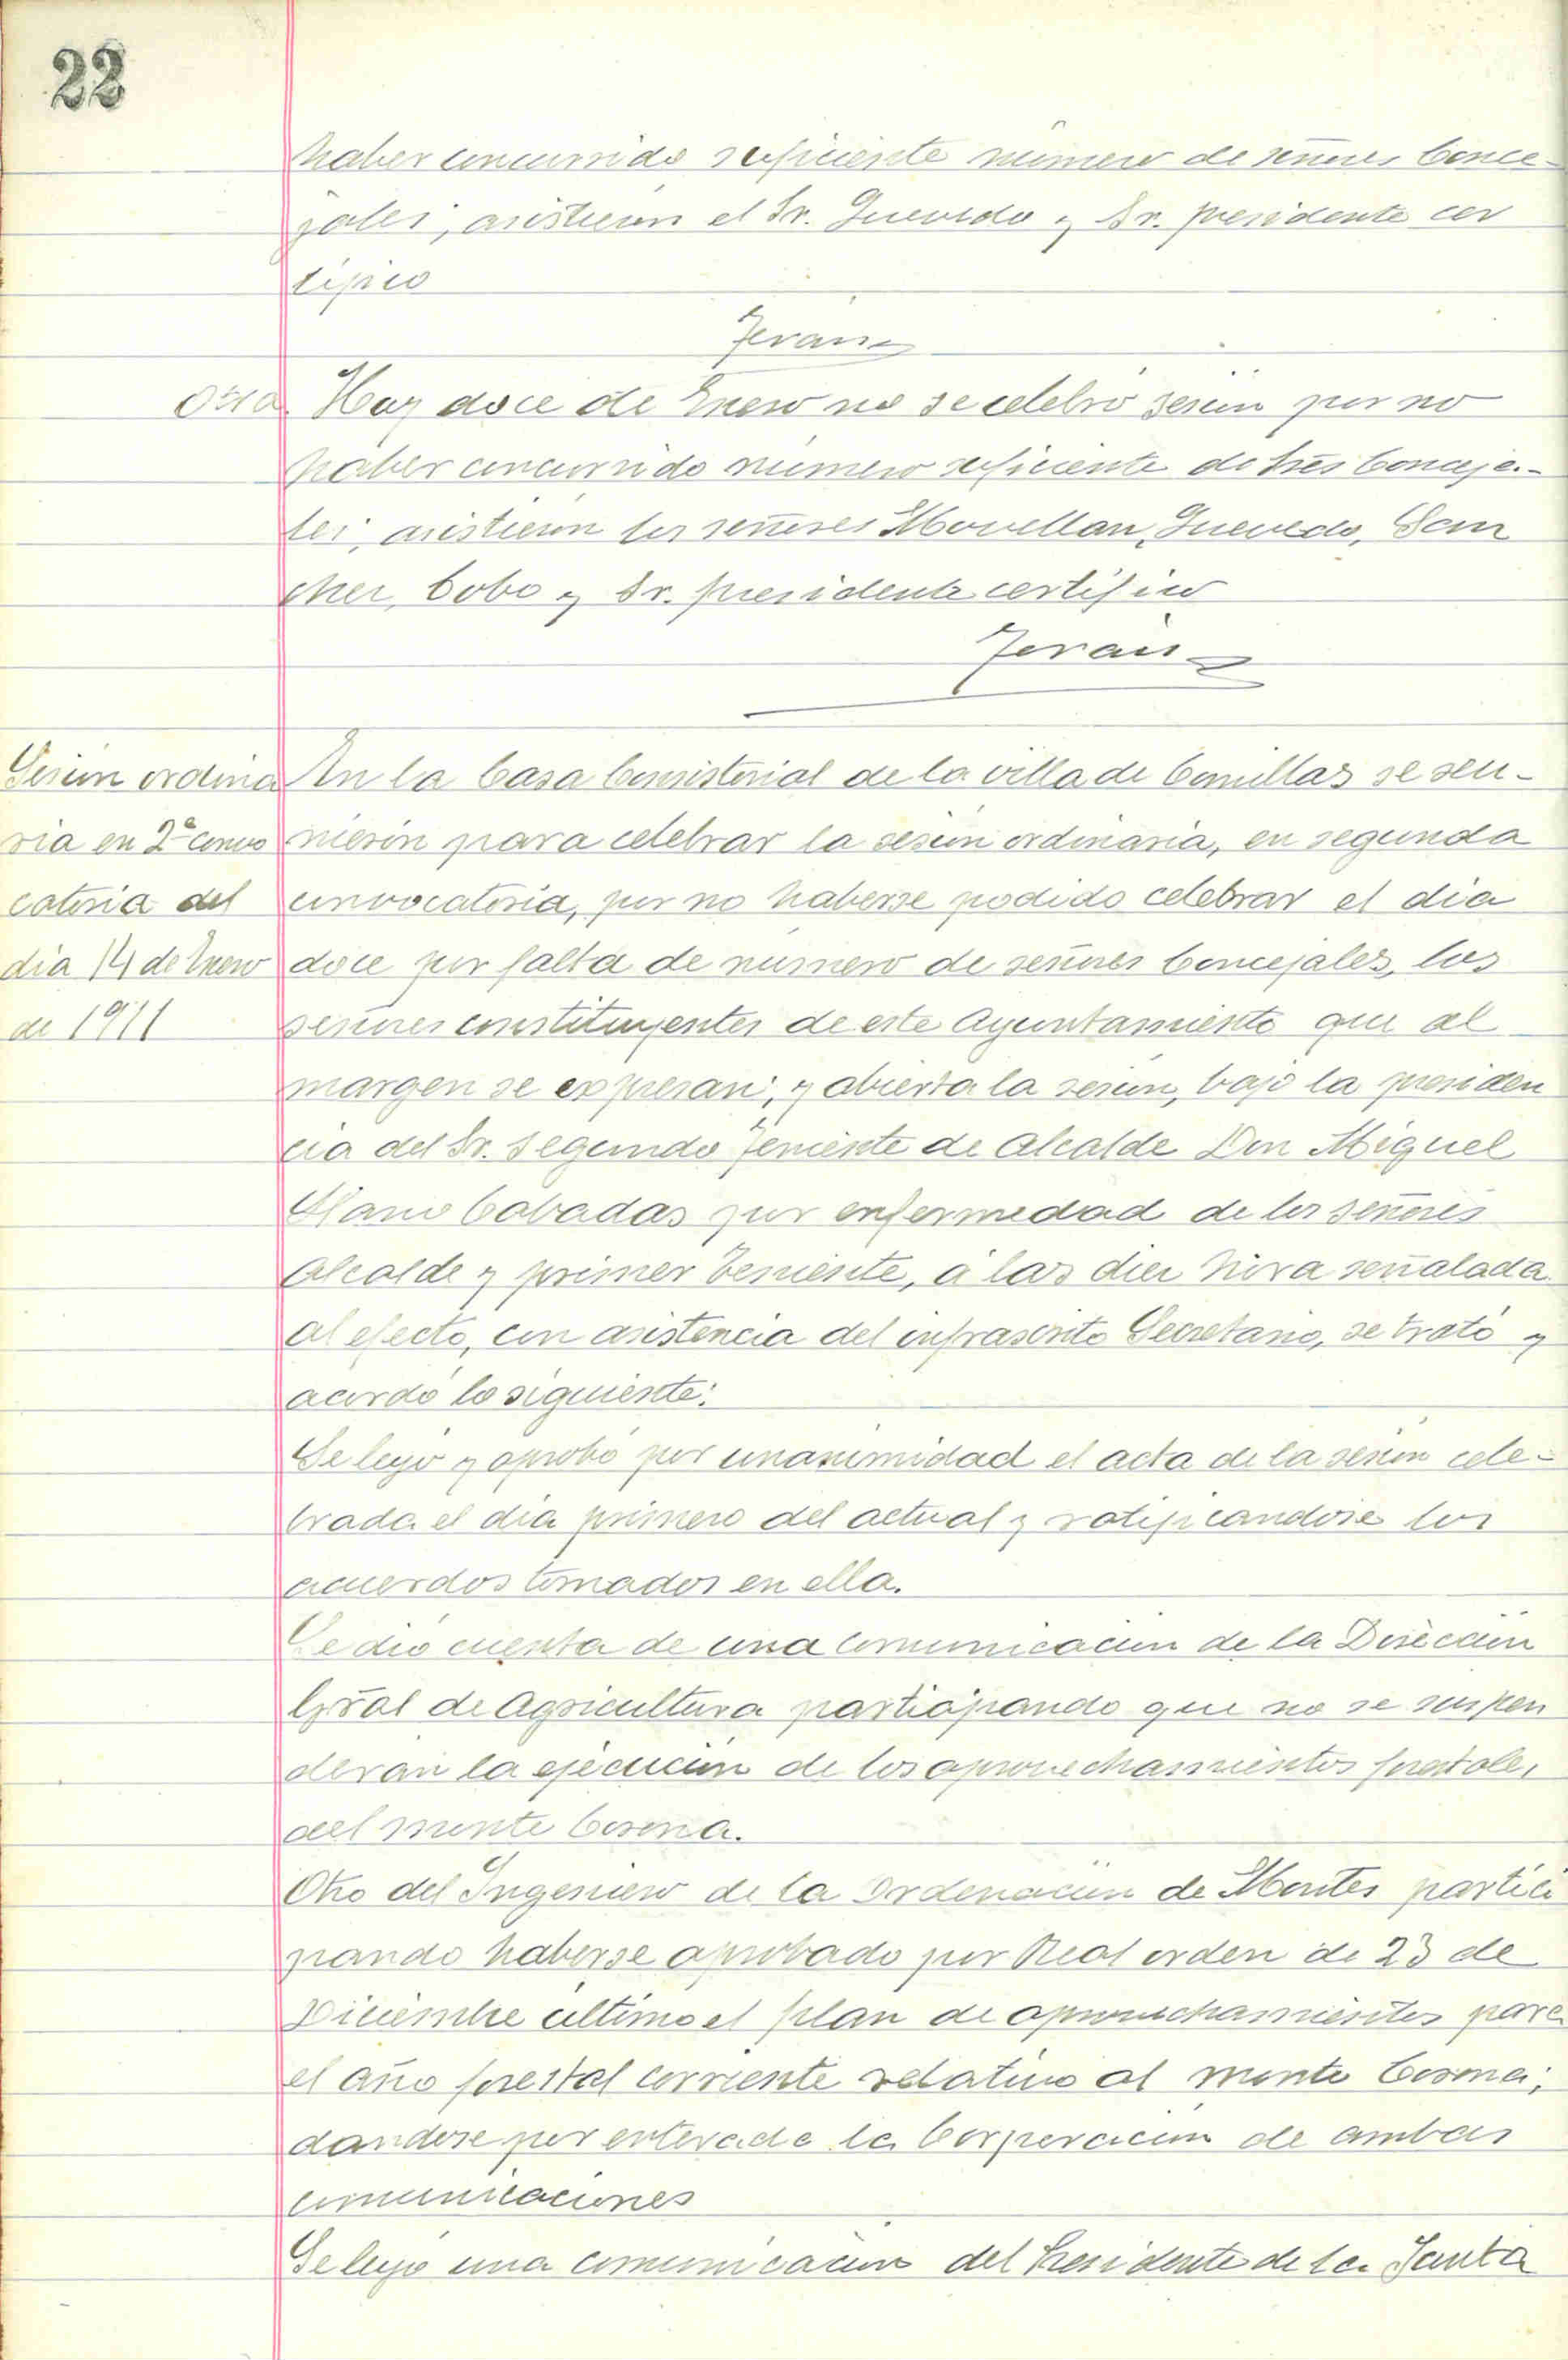 22
haber concurrido suficiente número de señores Conce-
jales; asistieron el Sr. Quevedo y Sr. presidente cer
tifico
Terán
Otra
Hoy doce de Enero no se celebró sesión por no
haber concurrido número suficiente de Sres Conceja-
les; asistieron los señores Movellan, Quevedo, San
chez, Cobo y Sr. presidente certifico
Terán
Sesión ordina
ria en 2ª convo
catoria del
dia 14 de Enero
de 1911
En la Casa Consistorial de la villa de Comillas se reu-
nieron para celebrar la sesión ordinaria, en segunda
convocatoria, por no haberse podido celebrar el dia
doce por falta de número de señores Concejales, los
señores constituyentes de este Ayuntamiento que al
margen se expresan; y abierta la sesión, bajo la presiden
cia del Sr. Segundo Teniente de Alcalde Don Miguel
Llano Cabadas por enfermedad de los señores
Alcalde y primer teniente, á las diez hora señalada
al efecto, con asistencia del infrascrito Secretario, se trató y
acordó lo siguiente:
Se leyó y aprobó por unanimidad el acta de la sesión cele-
brada el dia primero del actual y ratificandose los
acuerdos tomados en ella.
Se dió cuenta de una comunicación de la Dirección
Gral de Agricultura participando que no se suspen
deran la ejecución de los aprovechamientos forestales
del monte Corona.
Otro del Ingeniero de la Ordenación de Montes partici
pando haberse aprobado por Real orden de 23 de
Diciembre último el plan de aprovechamientos para
el año forestal corriente relativo al monte Corona;
dandose por enterada la Corporación de ambas
comunicaciones
Se leyó una comunicación del Presidente de la Junta